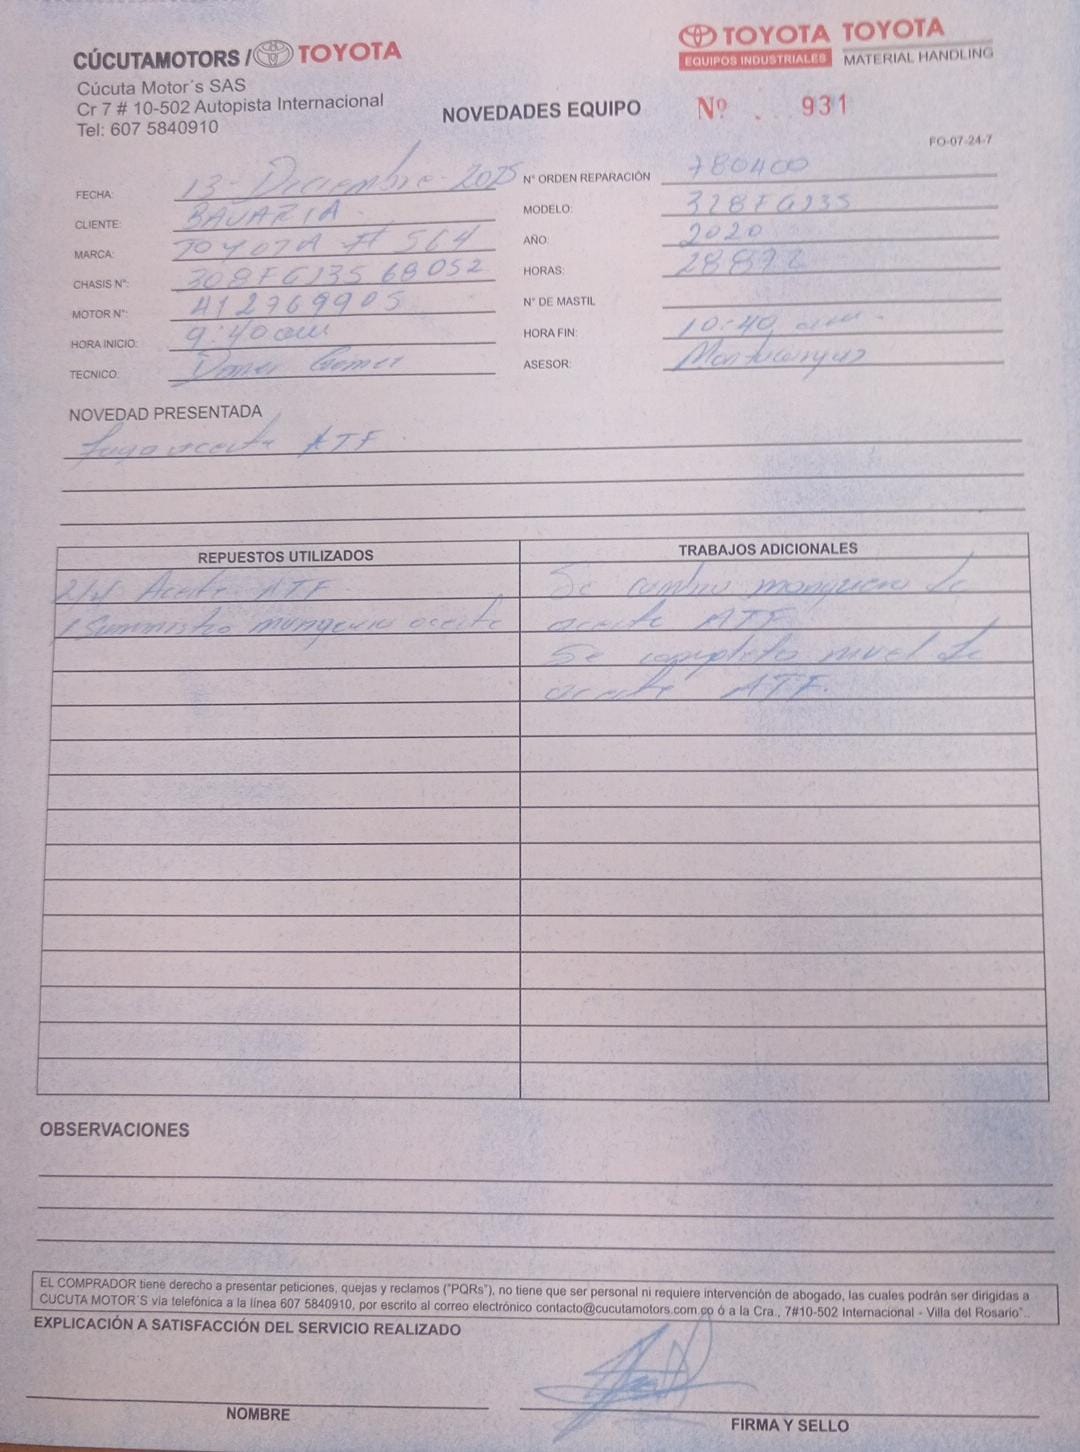 CÚCUTAMOTORS / TOYOTA
Cúcuta Motor´s SAS
Cr 7 # 10-502 Autopista Internacional
Tel: 607 5840910
TOYOTA TOYOTA
EQUIPOS INDUSTRIALES MATERIAL HANDLING
NOVEDADES EQUIPO
Nº 931
FO-07-24-7
FECHA: 13-Diciembre-2025
CLIENTE: BAVARIA
MARCA: TOYOTA # 564
CHASIS N°: 308FGJ35 68052
MOTOR N°: 412769905
HORA INICIO: 9:40 am
TECNICO:
N° ORDEN REPARACIÓN 780400
MODELO: 328FGJ35
AÑO: 2020
HORAS: 28892
N° DE MASTIL
HORA FIN: 10:40 am.
ASESOR:
NOVEDAD PRESENTADA
fuga aceite ATF
REPUESTOS UTILIZADOS
Aceite ATF
1 Suministro manguera aceite
TRABAJOS ADICIONALES
Se cambio manguera de
aceite ATF
Se completo nivel de
aceite ATF.
OBSERVACIONES
EL COMPRADOR tiene derecho a presentar peticiones, quejas y reclamos ("PQRs"), no tiene que ser personal ni requiere intervención de abogado, las cuales podrán ser dirigidas a
CUCUTA MOTOR´S vía telefónica a la línea 607 5840910, por escrito al correo electrónico contacto@cucutamotors.com.co ó a la Cra., 7#10-502 Internacional - Villa del Rosario"..
EXPLICACIÓN A SATISFACCIÓN DEL SERVICIO REALIZADO
NOMBRE
FIRMA Y SELLO